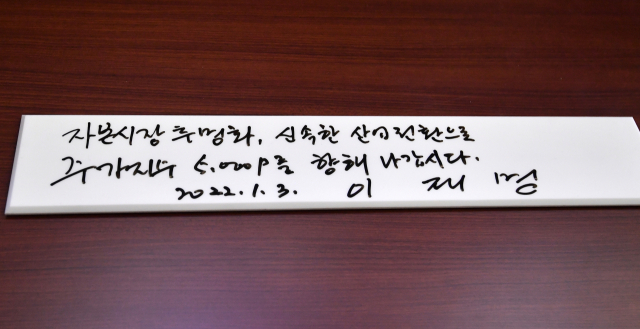 자본시장 투명화, 신속한 산업전환으로
주가지수 5,000P를 향해 나갑시다.
2022. 1. 3. 이 재 명